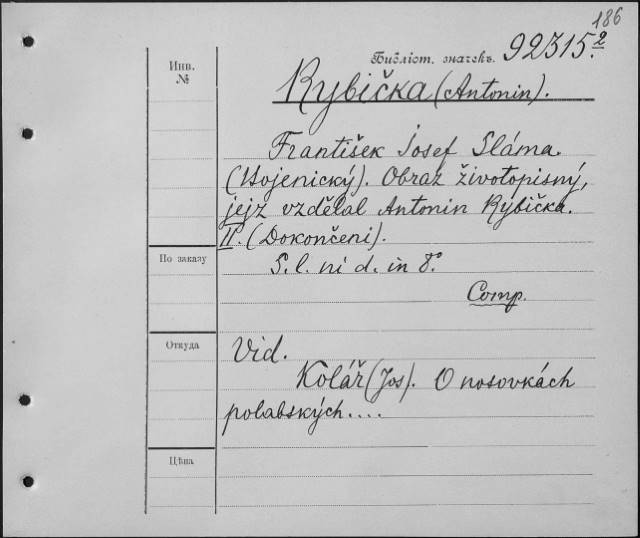 186
Библіот. значекъ. 92315.2
Инв.
№
Rybička (Antonin).
František Josef Sláma.
(Bojenický). Obraz životopisný,
jejz vzdělal Antonin Rybička.
II. (Dokončeni).
По заказу
S. l. ni d. in 8.
Comp.
Откуда
Vid.
Kolář (Jos). O nosovkách
polabských....
Цѣна